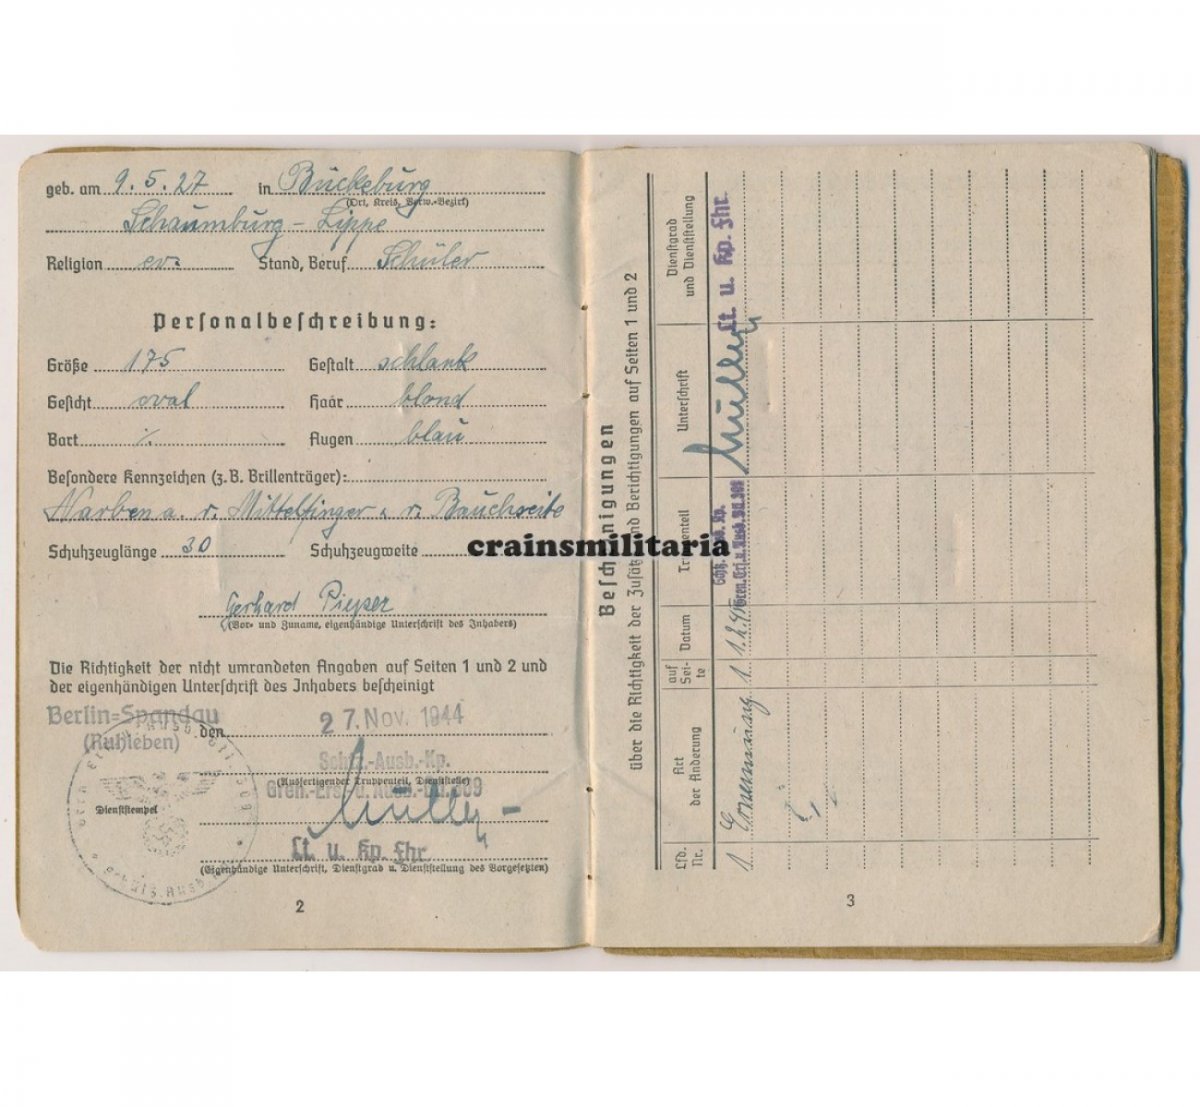 geb. am 9.5.27 in Bückeburg
(Ort, Kreis, Verw.-Bezirk)
Schaumburg-Lippe
Religion ev. Stand, Beruf Schüler
Personalbeschreibung:
Größe 175 Gestalt schlank
Gesicht oval Haar blond
Bart ·/. Augen blau
Besondere Kennzeichen (z.B. Brillenträger):
Narben a. r. Mittelfinger u. r. Bauchseite
Schuhzeuglänge 30 Schuhzeugweite
Gerhard Pieper
(Vor- und Zuname, eigenhändige Unterschrift des Inhabers)
Die Richtigkeit der nicht umrandeten Angaben auf Seiten 1 und 2 und
der eigenhändigen Unterschrift des Inhabers bescheinigt
Berlin-Spandau
(Ruhleben) den 27. Nov. 1944
Schtz.-Ausb.-Kp.
(Ausfertigender Truppenteil, Dienststelle)
Gren.-Ers.-u. Ausb.-Btl. 309
Dienststempel
Müller
Lt. u. Kp. Fhr.
(Eigenhändige Unterschrift, Dienstgrad u. Dienststellung des Vorgesetzten)
2
crainsmilitaria
Bescheinigungen
über die Richtigkeit der Zusätze und Berichtigungen auf Seiten 1 und 2
Lfd. Nr.
Art der Änderung
auf Seite
Datum
Truppenteil
Unterschrift
Dienstgrad und Dienststellung
1 Ernennung 1 1.2.45 Schtz. Ausb. Kp.
Gren. Ers. u. Ausb. Btl. 309 Müller Lt. u. Kp. Fhr.
3